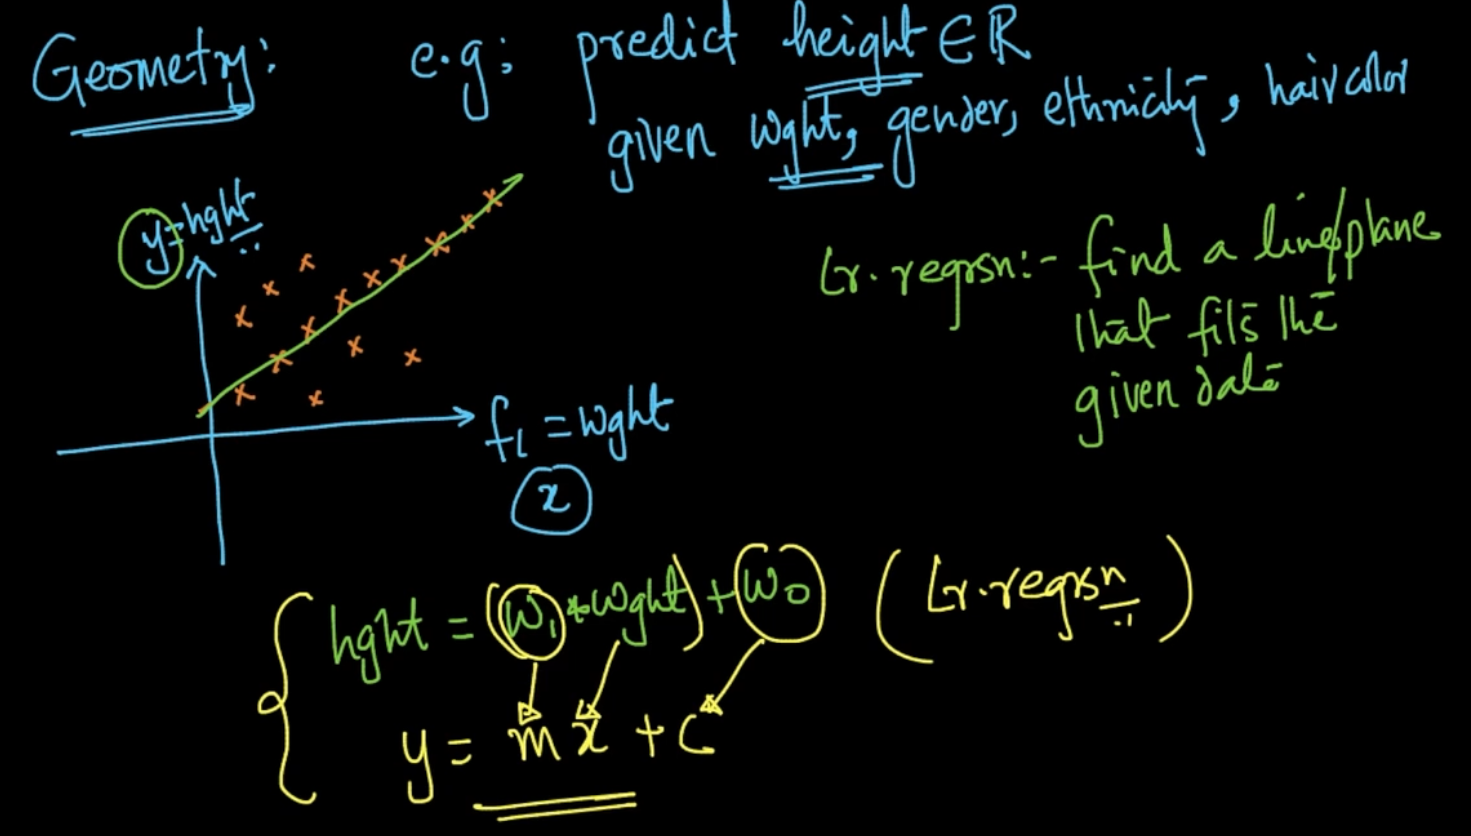 Geometry: e.g; predict height ∈ ℝ
given wght, gender, ethnicity, hair color
y=hght
Lr. regrsn:- find a line/plane
that fits the
given data
f₁ = wght
x
hght = (w₁ * wght) + w₀ (Lr. regrsn)
y = mx + c